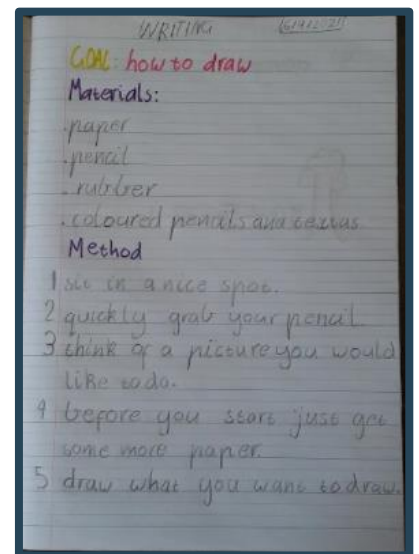 WRITING
GOAL: how to draw
Materials:
.paper
.pencil
.rubber
.coloured pencils and textas
Method
1 sit in a nice spot.
2 quickly grab your pencil.
3 think of a picture you would
like to do.
4 before you start just get
some more paper.
5 draw what you want to draw.